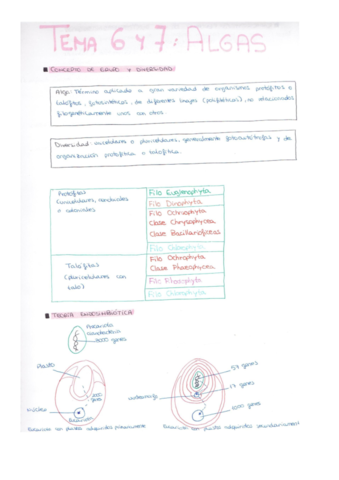 TEMA 6 y 7: ALGAS
CONCEPTO DE GRUPO Y DIVERSIDAD:
Alga: Término aplicado a gran variedad de organismos protófitos o
talófitos, fotosintéticos, de diferentes linajes (polifiléticos), no relacionados
filogenéticamente unos con otros.
Diversidad: unicelulares o pluricelulares, generalmente fotoautótrofos y de
organización protofítica o talofítica.
Protófitos
(unicelulares, cenobiales
o coloniales
Filo Euglenophyta
Filo Dinophyta
Filo Ochrophyta
Clase Chrysophyceae
Clase Bacillariofíceas
Filo Chlorophyta
Talófitos
(pluricelulares con
talo)
Filo Ochrophyta
Clase Phaeophyceae
Filo Rhodophyta
Filo Chlorophyta
TEORÍA ENDOSIMBIÓTICA:
Procariota
3000 genes
Plasto
57 genes
17 genes
núcleo
nucleomorfo
1000 genes
Eucarionte con plastos adquiridos primariamente
Eucarionte con plastos adquiridos secundariamente